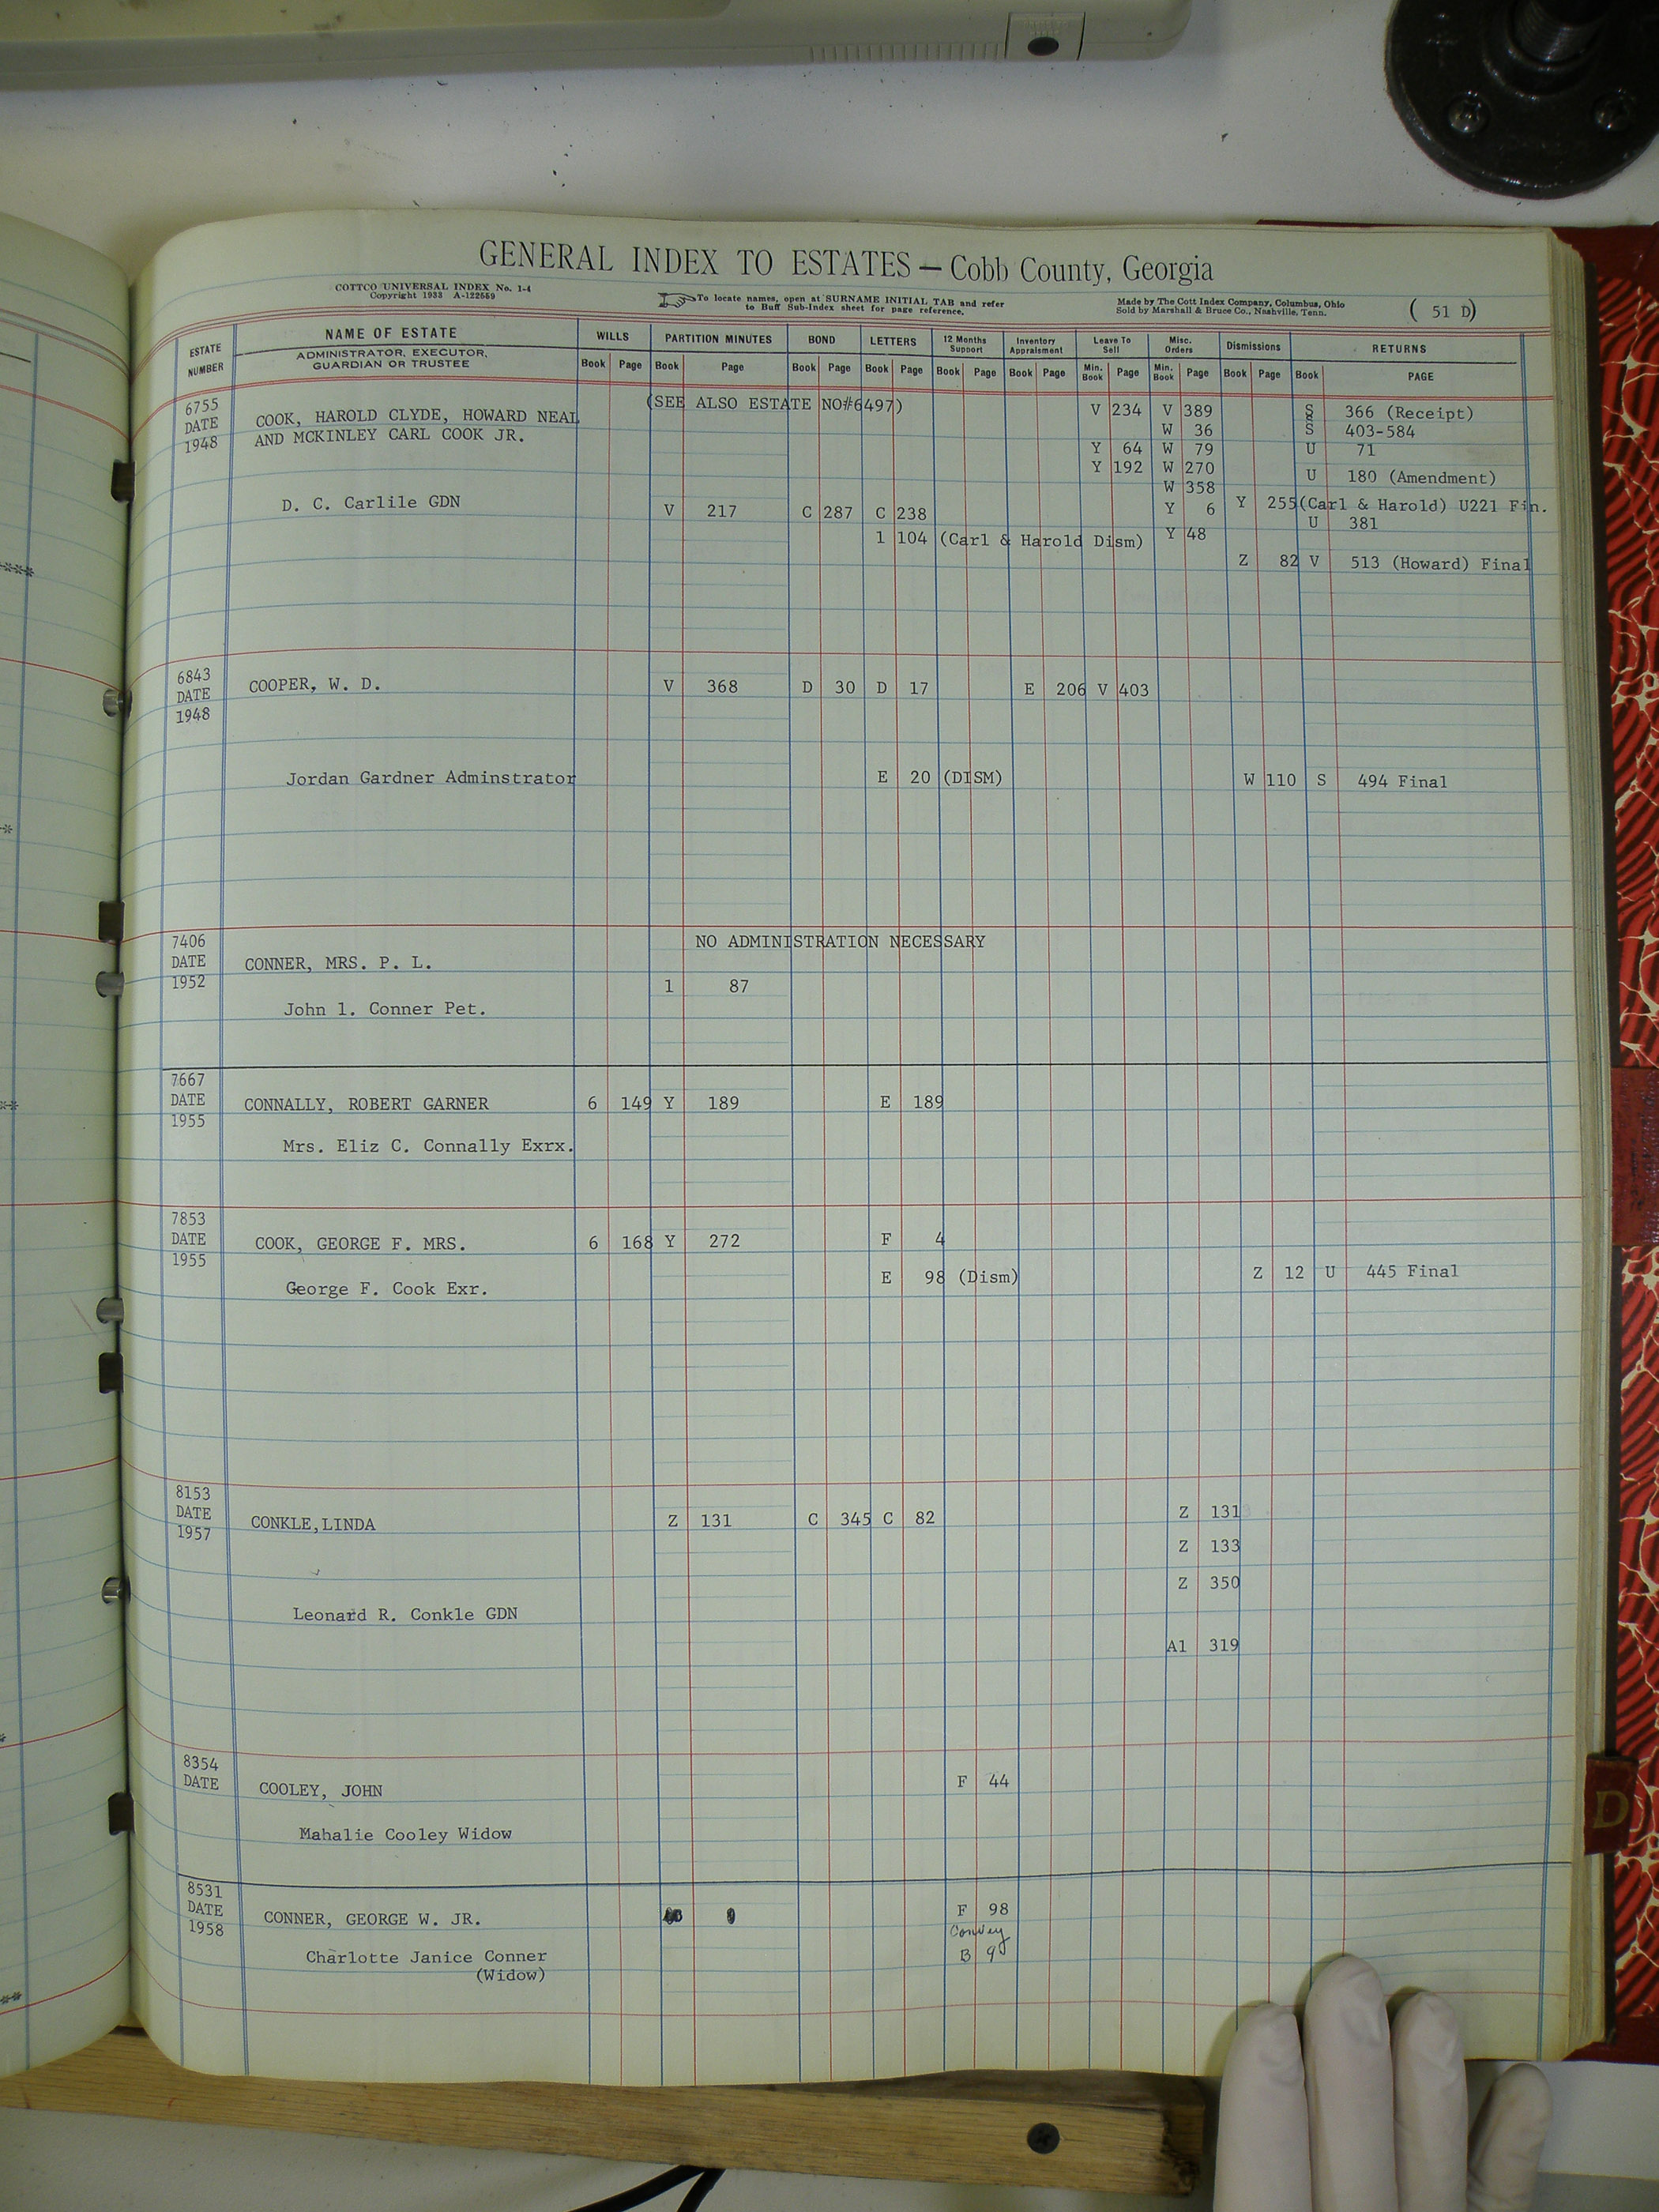 GENERAL INDEX TO ESTATES — Cobb County, Georgia
COTTCO UNIVERSAL INDEX No. 1-4
Copyright 1933 A-122559
To locate names, open at SURNAME INITIAL TAB and refer
to Buff Sub-Index sheet for page reference.
Made by The Cott Index Company, Columbus, Ohio
Sold by Marshall & Bruce Co., Nashville, Tenn.
( 51 D)
ESTATE NUMBER
NAME OF ESTATE
ADMINISTRATOR, EXECUTOR,
GUARDIAN OR TRUSTEE
WILLS PARTITION MINUTES BOND LETTERS 12 Months Support Inventory Appraisment Leave To Sell Misc. Orders Dismissions RETURNS
Book Page Book Page Book Page Book Page Book Page Book Page Min. Book Page Min. Book Page Book Page Book PAGE
6755 (SEE ALSO ESTATE NO#6497) V 234 V 389 S 366 (Receipt)
DATE COOK, HAROLD CLYDE, HOWARD NEAL W 36 S 403-584
1948 AND MCKINLEY CARL COOK JR. Y 64 W 79 U 71
Y 192 W 270 U 180 (Amendment)
W 358
D. C. Carlile GDN V 217 C 287 C 238 Y 6 Y 255(Carl & Harold) U221 Fin.
U 381
1 104 (Carl & Harold Dism) Y 48
Z 82 V 513 (Howard) Final
6843
DATE COOPER, W. D. V 368 D 30 D 17 E 206 V 403
1948
Jordan Gardner Adminstrator E 20 (DISM) W 110 S 494 Final
7406 NO ADMINISTRATION NECESSARY
DATE CONNER, MRS. P. L.
1952 1 87
John l. Conner Pet.
7667
DATE CONNALLY, ROBERT GARNER 6 149 Y 189 E 189
1955
Mrs. Eliz C. Connally Exrx.
7853
DATE COOK, GEORGE F. MRS. 6 168 Y 272 F 4
1955
George F. Cook Exr. E 98 (Dism) Z 12 U 445 Final
8153
DATE CONKLE,LINDA Z 131 C 345 C 82 Z 131
1957
Z 133
Z 350
Leonard R. Conkle GDN
A1 319
8354
DATE COOLEY, JOHN F 44
Mahalie Cooley Widow
8531
DATE CONNER, GEORGE W. JR. F 98
1958 Convey
Charlotte Janice Conner B 9
(Widow)
D